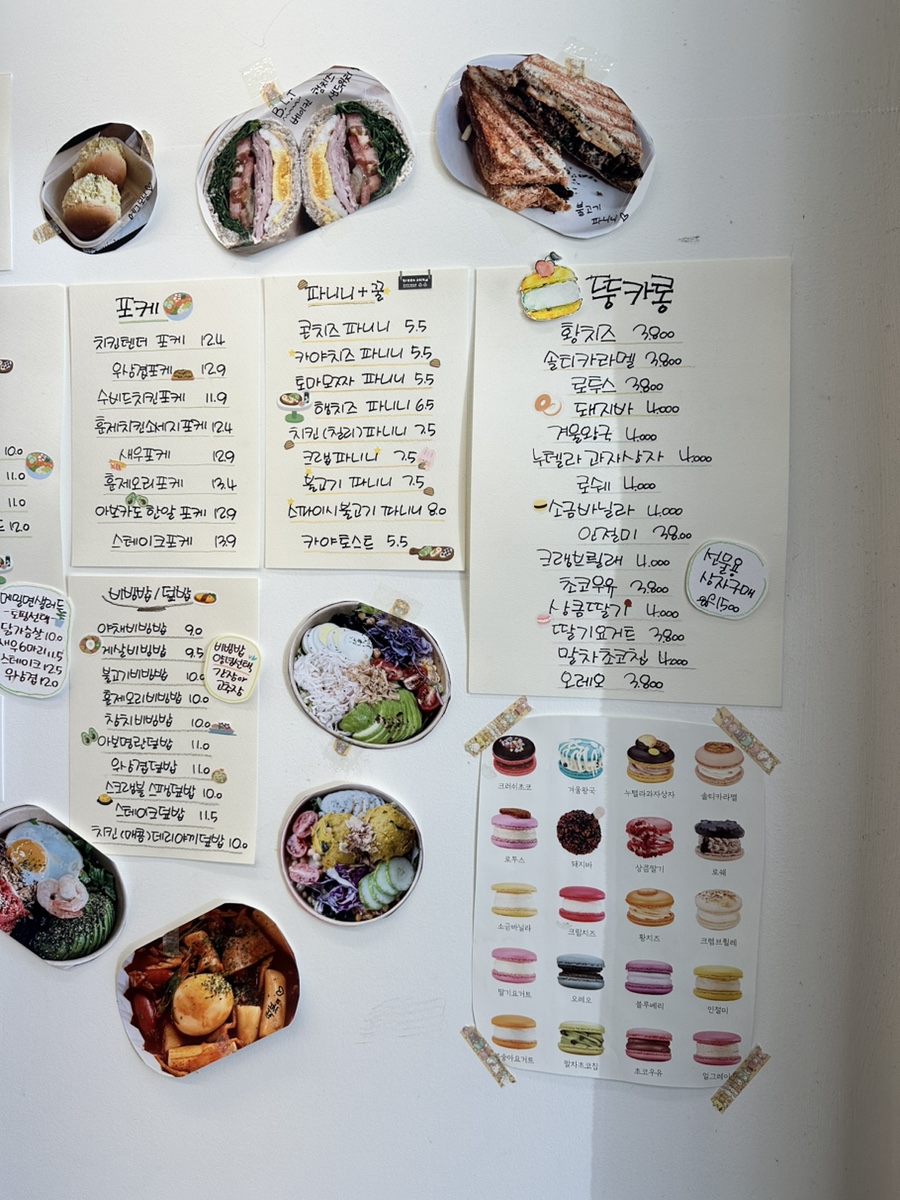 B.L.T
베이컨
햄치즈
샌드위치
불고기
파니니
포케
치킨텐더 포케 12.4
우삼겹포케 12.9
수비드치킨포케 11.9
훈제치킨소세지포케 12.4
새우포케 12.9
훈제오리포케 13.4
아보카도 한알 포케 12.9
스테이크포케 13.9
파니니+꿀
콘치즈 파니니 5.5
카야치즈 파니니 5.5
토마모짜 파니니 5.5
햄치즈 파니니 6.5
치킨(칠리)파니니 7.5
크랩파니니 7.5
불고기 파니니 7.5
스파이시불고기 파니니 8.0
카야토스트 5.5
뚱카롱
황치즈 3.800
솔티카라멜 3.800
로투스 3.800
돼지바 4.000
겨울왕국 4.000
누텔라 과자상자 4.000
로쉐 4.000
소금바닐라 4.000
인절미 3.800
크램브륄레 4.000
초코우유 3.800
상큼딸기 4.000
딸기요거트 3.800
말차초코칩 4.000
오레오 3.800
선물용
상자구매
1500
10.0
11.0
11.0
12.0
메밀면샐러드
토핑선택
닭가슴살 10.0
새우6마리 11.5
스테이크 12.5
우삼겹 12.0
비빔밥/덮밥
야채비빔밥 9.0
게살비빔밥 9.5
불고기비빔밥 10.0
훈제오리비빔밥 10.0
참치비빔밥 10.0
아보명란덮밥 11.0
우삼겹덮밥 11.0
스크램블 스팸덮밥 10.0
스테이크덮밥 11.5
치킨(매콤)데리야끼덮밥 10.0
비빔밥
양념선택
간장 or
고추장
크러쉬초코 겨울왕국 누텔라과자상자 솔티카라멜
로투스 돼지바 상큼딸기 로쉐
소금바닐라 크림치즈 황치즈 크렘브륄레
딸기요거트 오레오 블루베리 인절미
복숭아요거트 말차초코칩 초코우유 얼그레이